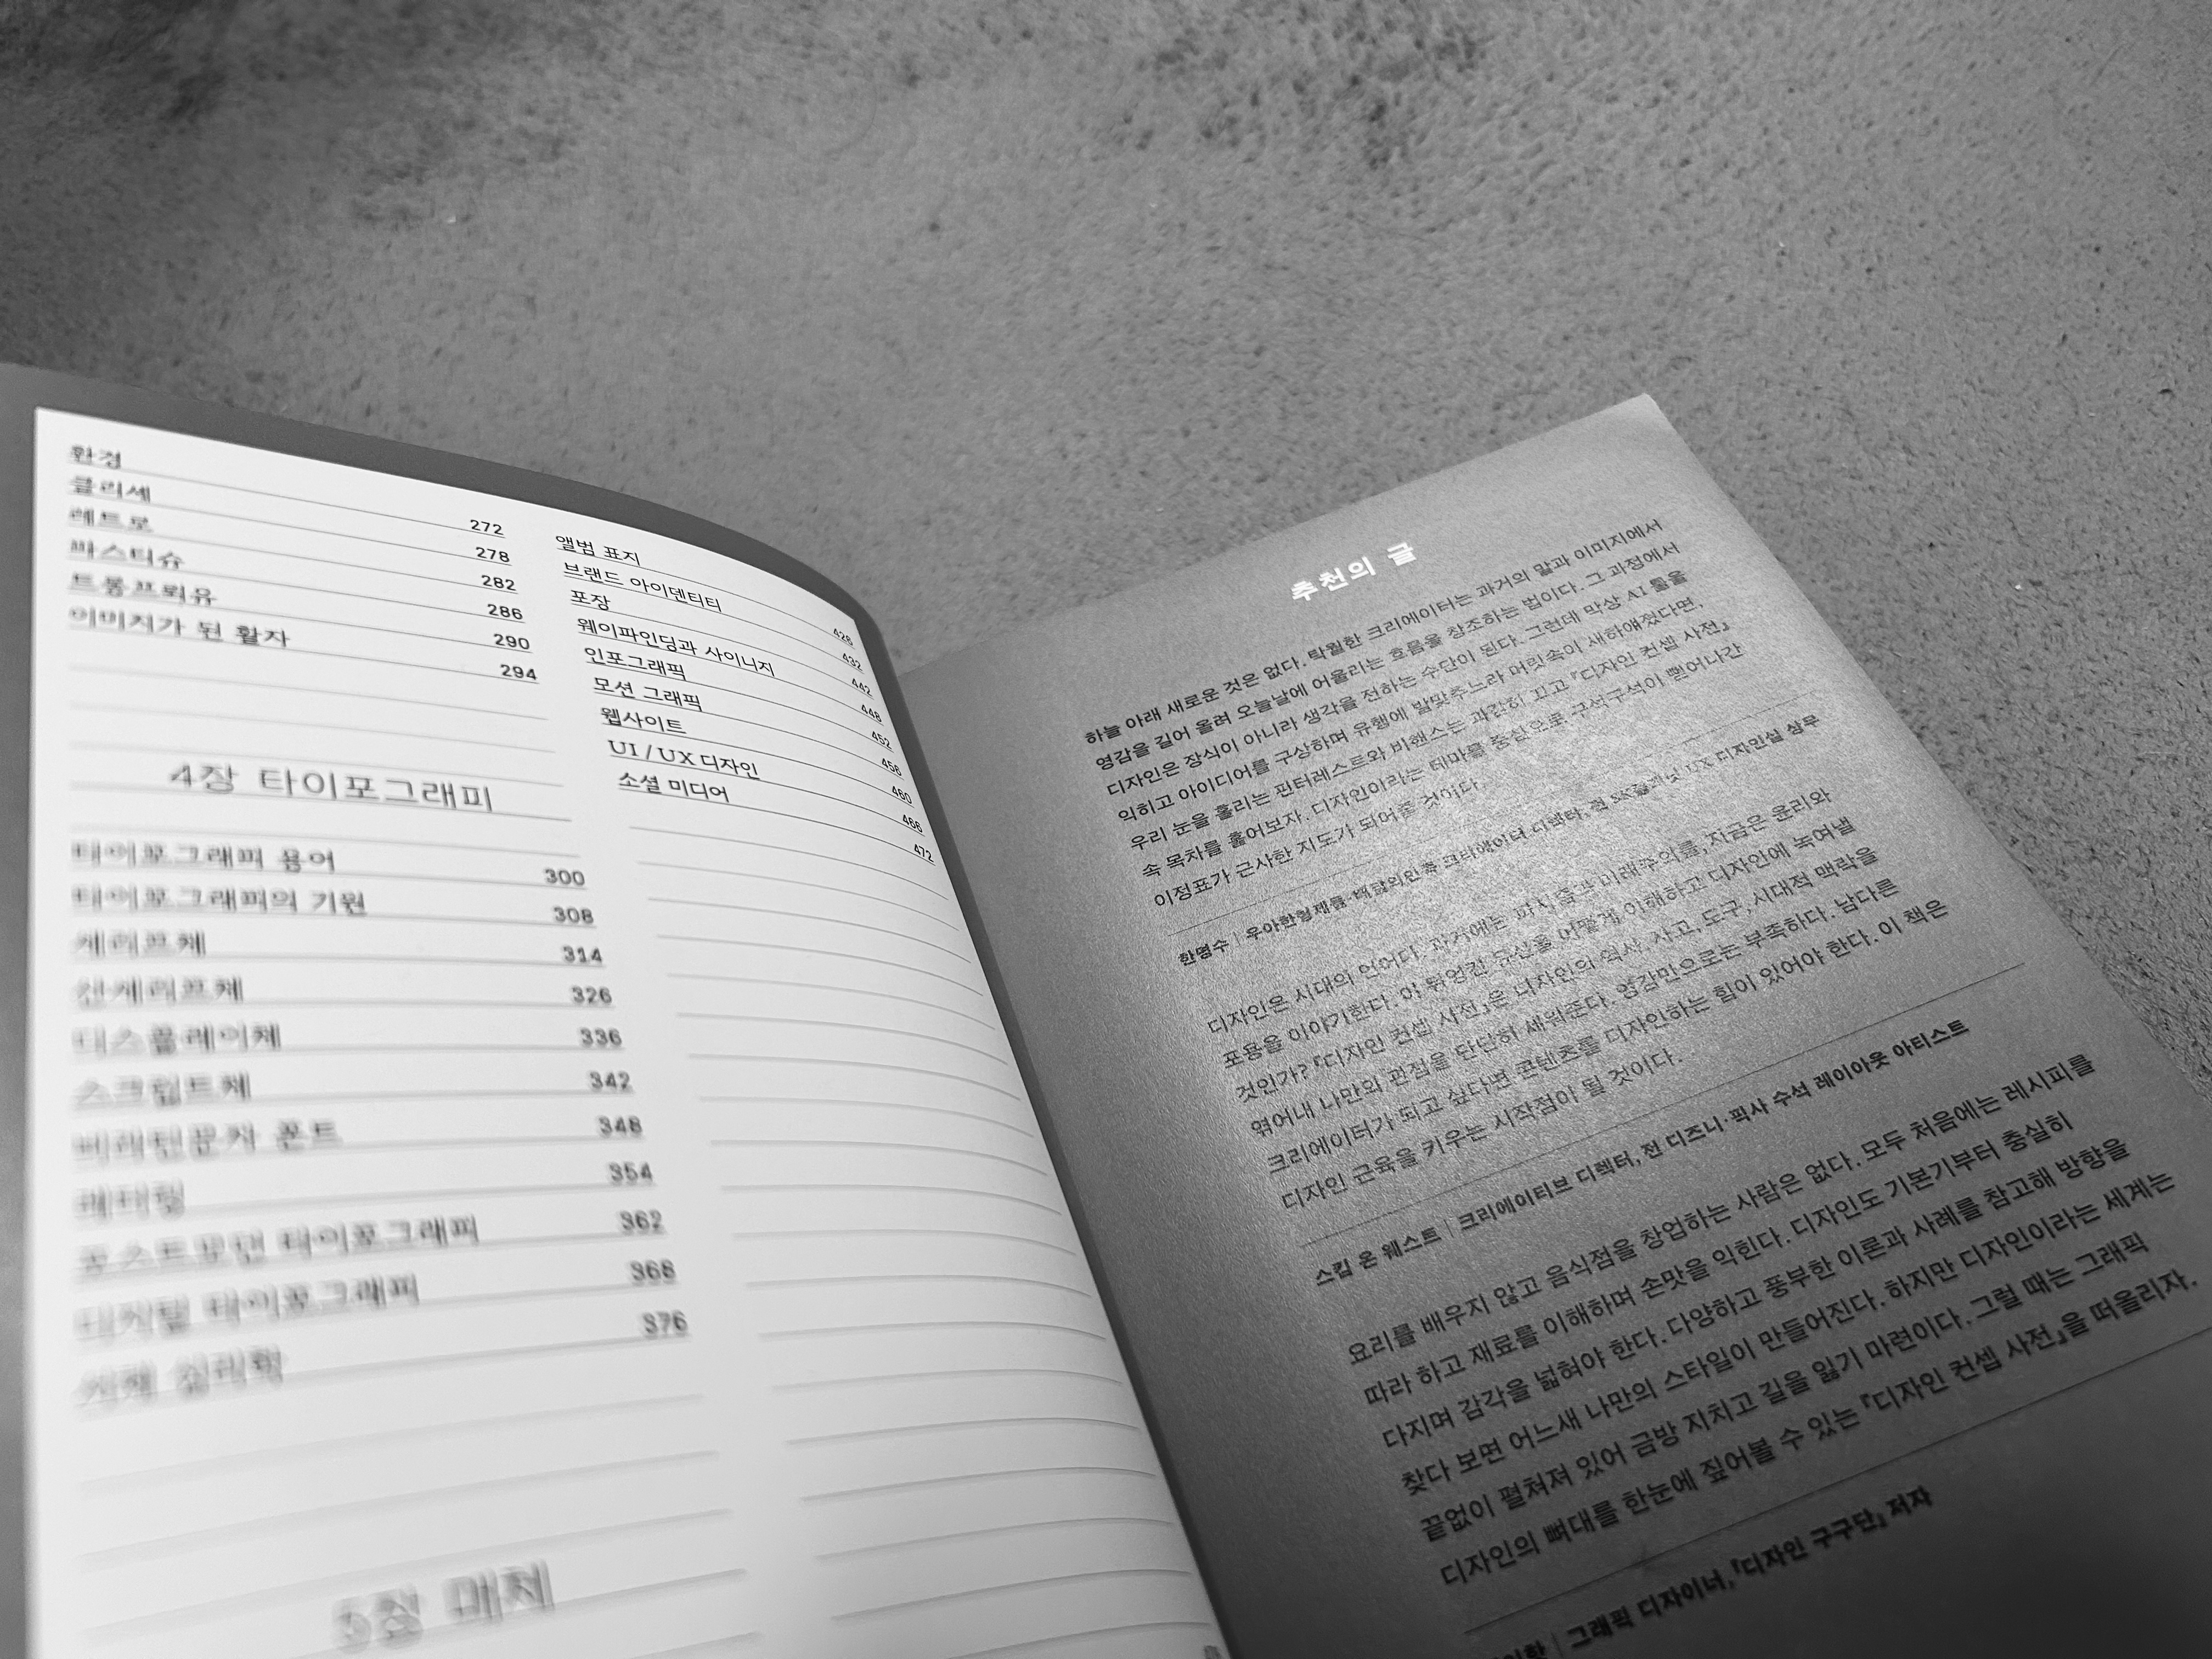 환경 272
클리셰 278
레트로 282
파스티슈 286
트롱프뢰유 290
이미지가 된 활자 294
4장 타이포그래피
타이포그래피 용어 300
타이포그래피의 기원 308
세리프체 314
산세리프체 326
디스플레이체 336
스크립트체 342
블랙레터 폰트 348
레터링 354
포스트모던 타이포그래피 362
디지털 타이포그래피 368
376
5장 매체
앨범 표지 426
브랜드 아이덴티티 432
포장 442
웨이파인딩과 사이니지 448
인포그래픽 452
모션 그래픽 456
웹사이트 460
UI / UX 디자인 466
소셜 미디어 472
추천의 글
하늘 아래 새로운 것은 없다. 탁월한 크리에이터는 과거의 말과 이미지에서
영감을 길어 올려 오늘날에 어울리는 흐름을 창조하는 법이다. 그 과정에서
디자인은 장식이 아니라 생각을 전하는 수단이 된다. 그런데 막상 AI 툴을
익히고 아이디어를 구상하며 유행에 발맞추느라 머릿속이 새하얘졌다면,
우리 눈을 홀리는 핀터레스트와 비핸스는 과감히 끄고 『디자인 컨셉 사전』
속 목차를 훑어보자. 디자인이라는 테마를 중심으로 구석구석이 뻗어나간
이정표가 근사한 지도가 되어줄 것이다.
한명수 | 우아한형제들·배달의민족 크리에이티브 디렉터, 전 UX 디자인실 상무
디자인은 시대의 언어다. 과거에는 파시즘과 미래주의를, 지금은 윤리와
포용을 이야기한다. 이 뒤엉킨 유산을 어떻게 이해하고 디자인에 녹여낼
것인가? 『디자인 컨셉 사전』은 디자인의 역사, 사고, 도구, 시대적 맥락을
엮어내 나만의 관점을 단단히 세워준다. 영감만으로는 부족하다. 남다른
크리에이터가 되고 싶다면 콘텐츠를 디자인하는 힘이 있어야 한다. 이 책은
디자인 근육을 키우는 시작점이 될 것이다.
스킵 온 웨스트 | 크리에이티브 디렉터, 전 디즈니·픽사 수석 레이아웃 아티스트
요리를 배우지 않고 음식점을 창업하는 사람은 없다. 모두 처음에는 레시피를
따라 하고 재료를 이해하며 손맛을 익힌다. 디자인도 기본기부터 충실히
다지며 감각을 넓혀야 한다. 다양하고 풍부한 이론과 사례를 참고해 방향을
찾다 보면 어느새 나만의 스타일이 만들어진다. 하지만 디자인이라는 세계는
끝없이 펼쳐져 있어 금방 지치고 길을 잃기 마련이다. 그럴 때는 그래픽
디자인의 뼈대를 한눈에 짚어볼 수 있는 『디자인 컨셉 사전』을 떠올리자.
| 그래픽 디자이너, 『디자인 구구단』 저자